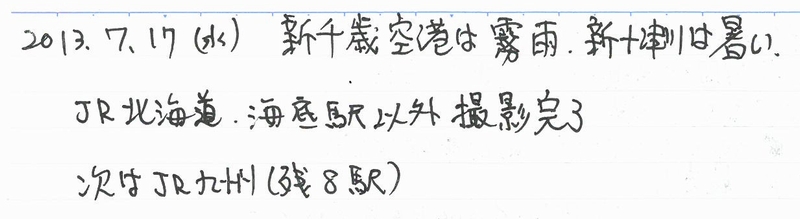 2013.7.17(水) 新千歳空港は霧雨.新十津川は暑い.
JR北海道.海底駅以外撮影完了
次はJR九州(残8駅)